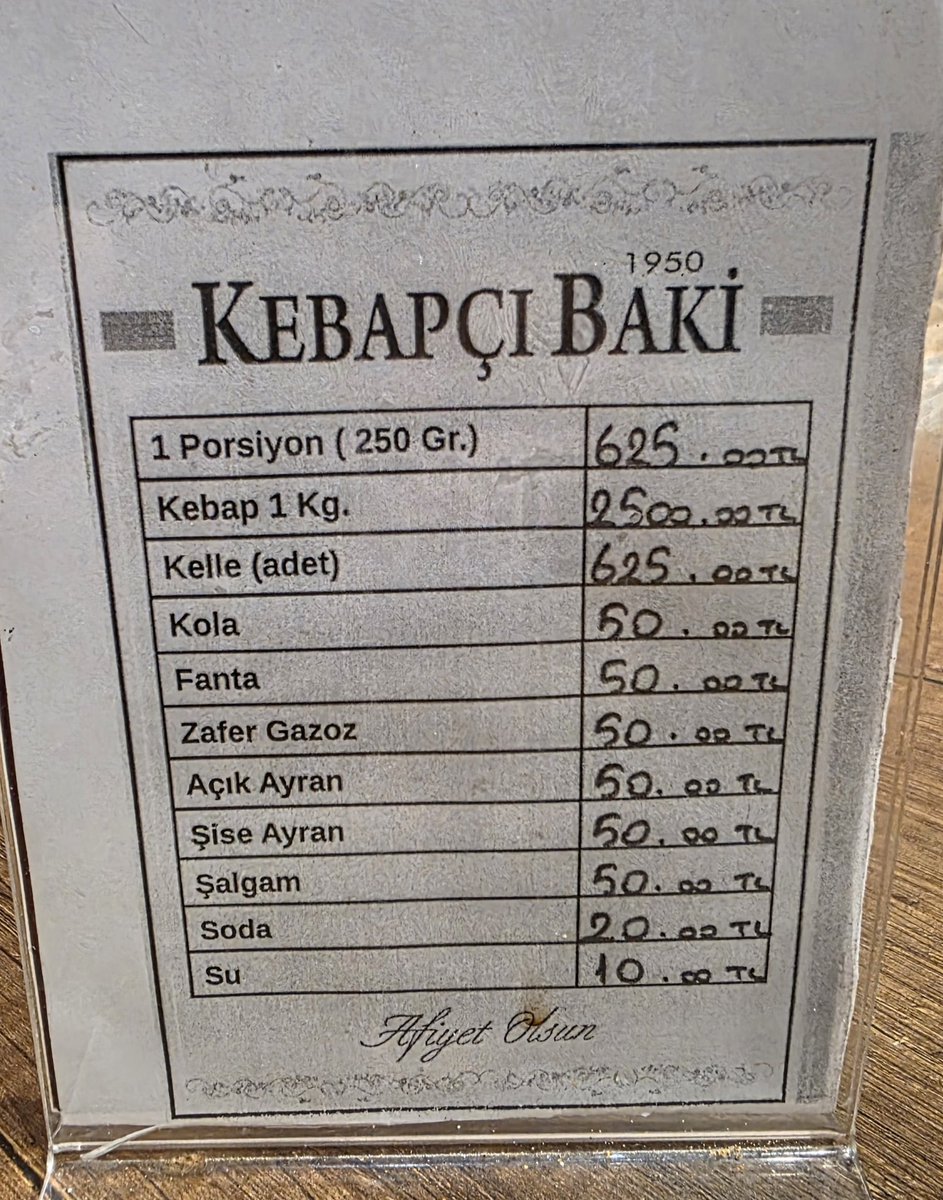 1950
KEBAPÇI BAKİ
1 Porsiyon ( 250 Gr.) 625.00TL
Kebap 1 Kg. 2500.00 TL
Kelle (adet) 625.00 TL
Kola 50.00 TL
Fanta 50.00 TL
Zafer Gazoz 50.00 TL
Açık Ayran 50.00 TL
Şise Ayran 50.00 TL
Şalgam 50.00 TL
Soda 20.00 TL
Su 10.00 TL
Afiyet Olsun